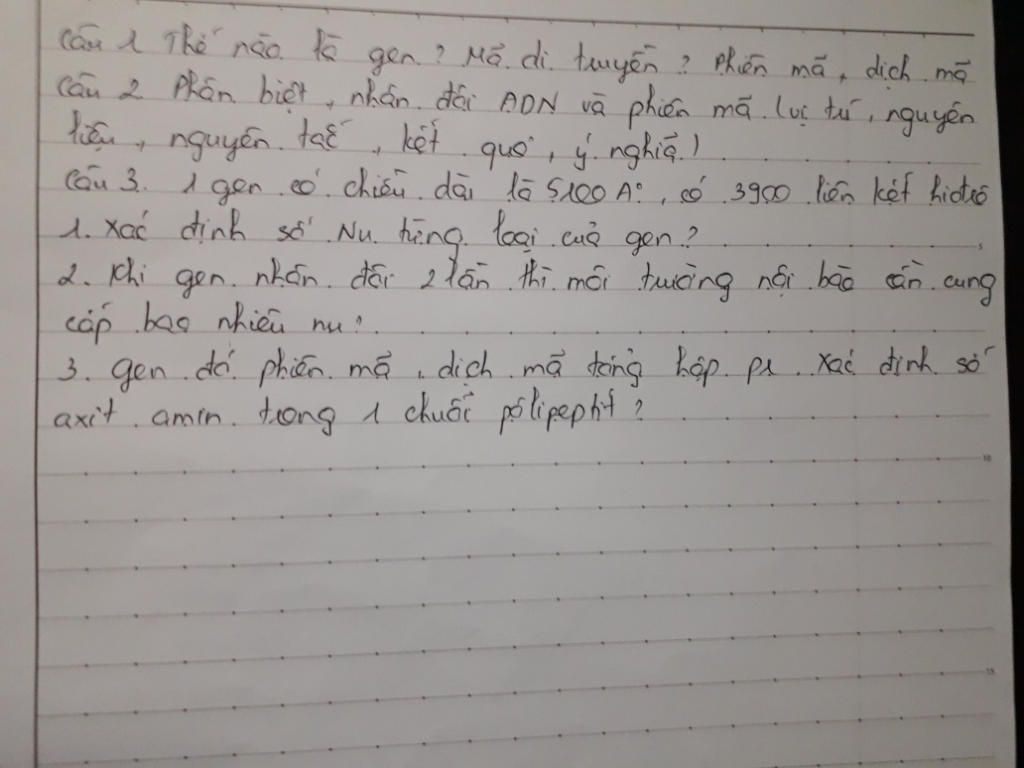 Câu 1 Thế nào là gen? Mã di truyền? Phiên mã, dịch mã
Câu 2 Phân biệt, nhân đôi ADN và phiên mã (vị trí, nguyên
liệu, nguyên tắc, kết quả, ý nghĩa)
Câu 3. 1 gen có chiều dài là 5100 A°, có 3900 liên kết hidrô
1. Xác định số Nu từng loại của gen?
2. Khi gen nhân đôi 2 lần thì môi trường nội bào cần cung
cấp bao nhiêu nu?
3. gen đó phiên mã, dịch mã tổng hợp pr. Xác định số
axit amin trong 1 chuỗi pôlipeptit?